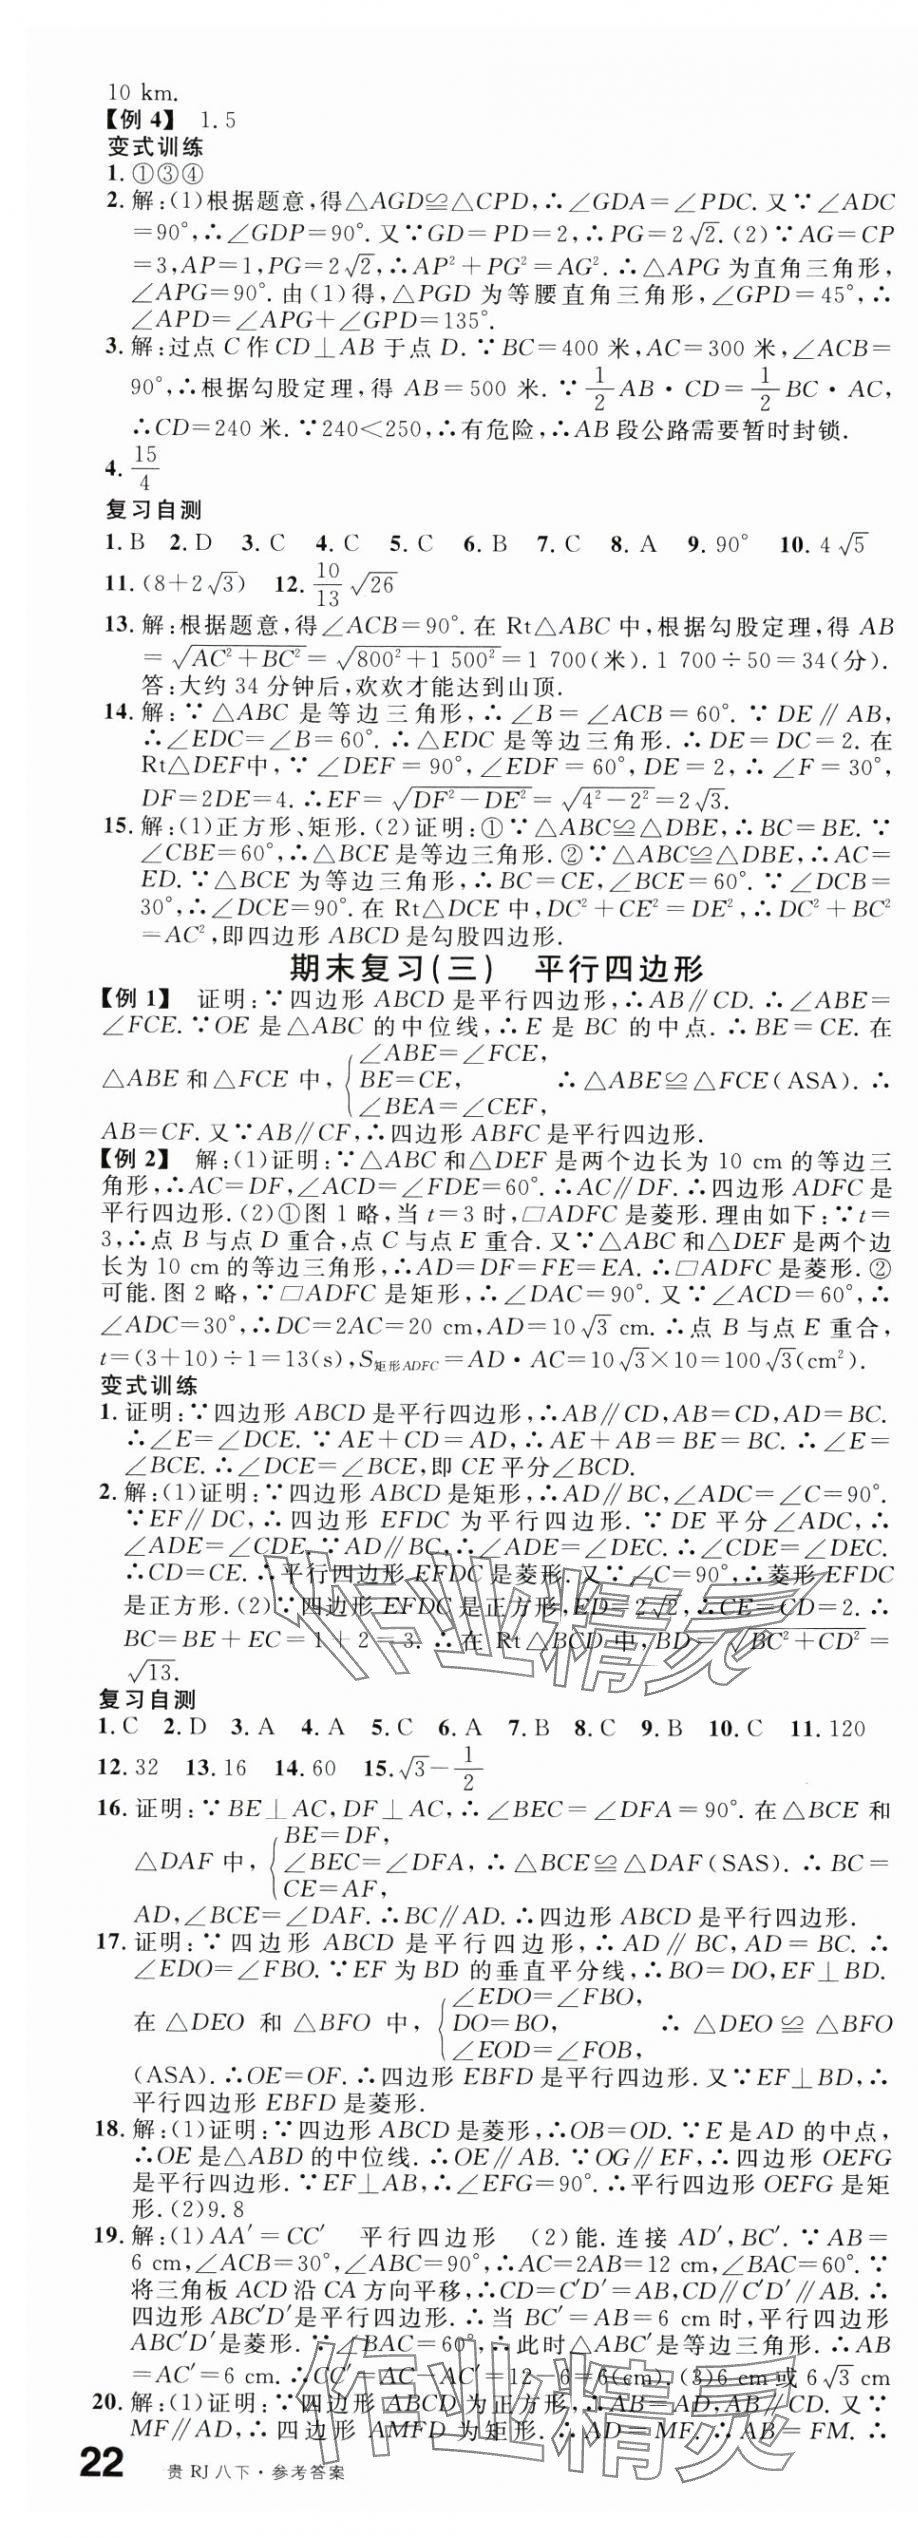 10 km.
【例 4】 1.5
变式训练
1. ①③④
2. 解:(1)根据题意,得△AGD≌△CPD,∴∠GDA=∠PDC. 又∵∠ADC
=90°,∴∠GDP=90°. 又∵GD=PD=2,∴PG=2√2. (2)∵AG=CP
=3,AP=1,PG=2√2,∴AP²+PG²=AG². ∴△APG 为直角三角形,
∠APG=90°. 由(1)得,△PGD 为等腰直角三角形,∠GPD=45°,∴
∠APD=∠APG+∠GPD=135°.
3. 解:过点 C 作 CD⊥AB 于点 D. ∵BC=400 米,AC=300 米,∠ACB=
90°,∴根据勾股定理,得 AB=500 米. ∵1/2 AB·CD=1/2 BC·AC,
∴CD=240 米. ∵240<250,∴有危险,∴AB 段公路需要暂时封锁.
4. 15/4
复习自测
1. B 2. D 3. C 4. C 5. C 6. B 7. C 8. A 9. 90° 10. 4√5
11. (8+2√3) 12. 10/13 √26
13. 解:根据题意,得∠ACB=90°. 在 Rt△ABC 中,根据勾股定理,得 AB
=√(AC²+BC²)=√(800²+1 500²)=1 700(米). 1 700÷50=34(分).
答:大约 34 分钟后,欢欢才能达到山顶.
14. 解:∵△ABC 是等边三角形,∴∠B=∠ACB=60°. ∵DE∥AB,
∴∠EDC=∠B=60°. ∴△EDC 是等边三角形. ∴DE=DC=2. 在
Rt△DEF中,∵∠DEF=90°,∠EDF=60°,DE=2,∴∠F=30°,
DF=2DE=4. ∴EF=√(DF²-DE²)=√(4²-2²)=2√3.
15. 解:(1)正方形、矩形. (2)证明:①∵△ABC≌△DBE,∴BC=BE. ∵
∠CBE=60°,∴△BCE 是等边三角形. ②∵△ABC≌△DBE,∴AC=
ED. ∵△BCE 为等边三角形,∴BC=CE,∠BCE=60°. ∵∠DCB=
30°,∴∠DCE=90°. 在 Rt△DCE 中,DC²+CE²=DE²,∴DC²+BC²
=AC²,即四边形 ABCD 是勾股四边形.
期末复习(三) 平行四边形
【例 1】 证明:∵四边形 ABCD 是平行四边形,∴AB∥CD. ∴∠ABE=
∠FCE. ∵OE 是△ABC 的中位线,∴E 是 BC 的中点. ∴BE=CE. 在
△ABE 和△FCE 中, {∠ABE=∠FCE, BE=CE, ∠BEA=∠CEF, ∴△ABE≌△FCE(ASA). ∴
AB=CF. 又∵AB∥CF,∴四边形 ABFC 是平行四边形.
【例 2】 解:(1)证明:∵△ABC 和△DEF 是两个边长为 10 cm 的等边三
角形,∴AC=DF,∠ACD=∠FDE=60°. ∴AC∥DF. ∴四边形 ADFC 是
平行四边形. (2)①图 1 略,当 t=3 时,□ADFC 是菱形. 理由如下:∵t=
3,∴点 B 与点 D 重合,点 C 与点 E 重合. 又∵△ABC 和△DEF 是两个边
长为 10 cm 的等边三角形,∴AD=DF=FE=EA. ∴□ADFC 是菱形. ②
可能. 图 2 略,∵□ADFC 是矩形,∴∠DAC=90°. 又∵∠ACD=60°,∴
∠ADC=30°,∴DC=2AC=20 cm,AD=10√3 cm. ∴点 B 与点 E 重合,
t=(3+10)÷1=13(s),S矩形ADFC=AD·AC=10√3×10=100√3(cm²).
变式训练
1. 证明:∵四边形 ABCD 是平行四边形,∴AB∥CD,AB=CD,AD=BC.
∴∠E=∠DCE. ∵AE+CD=AD,∴AE+AB=BE=BC. ∴∠E=
∠BCE. ∴∠DCE=∠BCE,即 CE 平分∠BCD.
2. 解:(1)证明:∵四边形 ABCD 是矩形,∴AD∥BC,∠ADC=∠C=90°.
∵EF∥DC,∴四边形 EFDC 为平行四边形. ∵DE 平分∠ADC,∴
∠ADE=∠CDE. ∵AD∥BC,∴∠ADE=∠DEC. ∴∠CDE=∠DEC.
∴CD=CE. ∴平行四边形 EFDC 是菱形. 又∵∠C=90°,∴菱形 EFDC
是正方形. (2)∵四边形 EFDC 是正方形,ED=2√2,∴CE=CD=2. ∴
BC=BE+EC=1+2=3. ∴在 Rt△BCD 中,BD=√(BC²+CD²)=
√13.
复习自测
1. C 2. D 3. A 4. A 5. C 6. A 7. B 8. C 9. B 10. C 11. 120
12. 32 13. 16 14. 60 15. √3-1/2
16. 证明:∵BE⊥AC,DF⊥AC,∴∠BEC=∠DFA=90°. 在△BCE 和
△DAF 中, {BE=DF, ∠BEC=∠DFA, CE=AF, ∴△BCE≌△DAF(SAS). ∴BC=
AD,∠BCE=∠DAF. ∴BC∥AD. ∴四边形 ABCD 是平行四边形.
17. 证明:∵四边形 ABCD 是平行四边形,∴AD∥BC,AD=BC. ∴
∠EDO=∠FBO. ∵EF 为 BD 的垂直平分线,∴BO=DO,EF⊥BD.
在△DEO 和△BFO 中, {∠EDO=∠FBO, DO=BO, ∠EOD=∠FOB, ∴△DEO≌△BFO
(ASA). ∴OE=OF. ∴四边形 EBFD 是平行四边形. 又∵EF⊥BD,∴
平行四边形 EBFD 是菱形.
18. 解:(1)证明:∵四边形 ABCD 是菱形,∴OB=OD. ∵E 是 AD 的中点,
∴OE 是△ABD 的中位线. ∴OE∥AB. ∵OG∥EF,∴四边形 OEFG
是平行四边形. ∵EF⊥AB,∴∠EFG=90°. ∴平行四边形 OEFG 是矩
形. (2)9. 8
19. 解:(1)AA′=CC′ 平行四边形 (2)能. 连接 AD′,BC′. ∵AB=
6 cm,∠ACB=30°,∠ABC=90°,∴AC=2AB=12 cm,∠BAC=60°. ∵
将三角板 ACD 沿 CA 方向平移,∴CD=C′D′=AB,CD∥C′D′∥AB. ∴
四边形 ABC′D′是平行四边形. ∴当 BC′=AB=6 cm 时,平行四边形
ABC′D′是菱形. ∵∠BAC=60°,∴此时△ABC′是等边三角形. ∴AB
=AC′=6 cm. ∴CC′=AC-AC′=12-6=6(cm). (3)6 cm 或 6√3 cm
20. 解:(1)证明:∵四边形 ABCD 为正方形,∴AB=AD,AB∥CD. 又∵
MF∥AD,∴四边形 AMFD 为矩形. ∴AD=MF. ∴AB=FM. ∴
22 贵 RJ 八下·参考答案
作业精灵
作业精灵